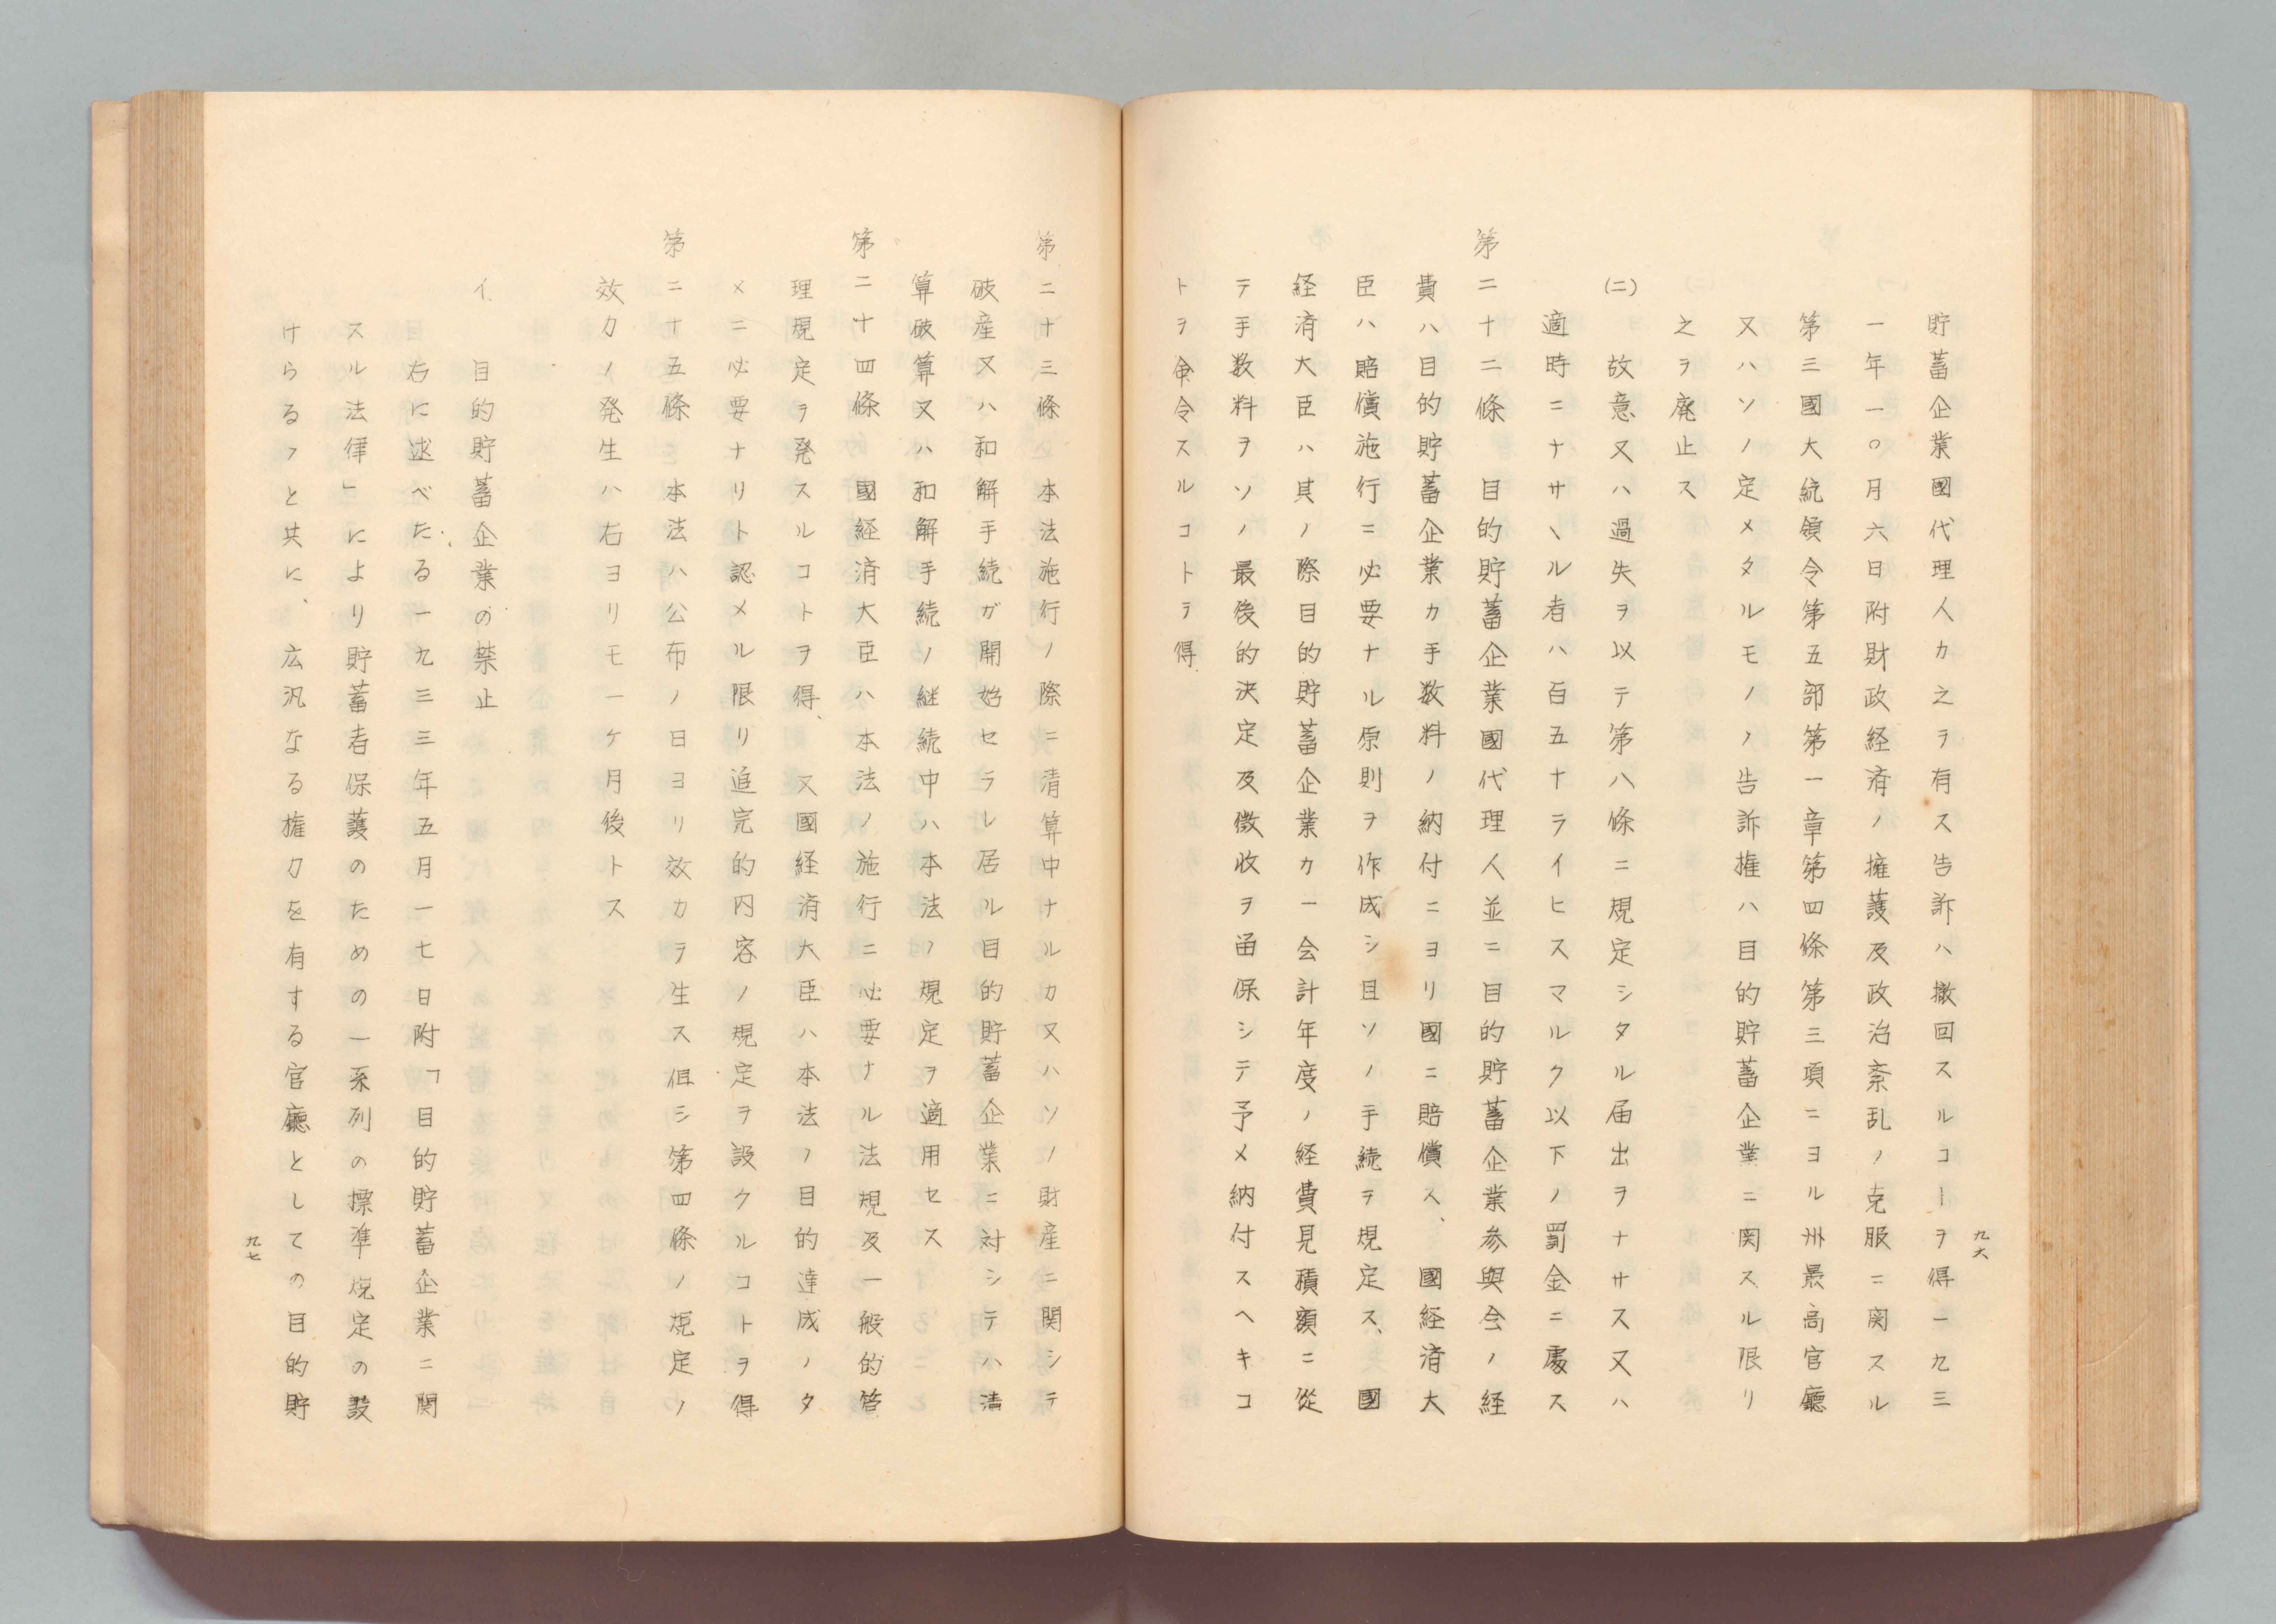 九六
貯蓄企業國代理人カ之ヲ有ス告訴ハ撤回スルコーヲ得一九三
一年一〇月六日附財政経済ノ擁護及政治紊乱ノ克服ニ関スル
第三國大統領令第五部第一章第四條第三項ニヨル州最高官廳
又ハソノ定メタルモノノ告訴権ハ目的貯蓄企業ニ関スル限リ
之ヲ廃止ス
(二) 故意又ハ過失ヲ以テ第八條ニ規定シタル届出ヲナサス又ハ
適時ニナサヽル者ハ百五十ライヒスマルク以下ノ罰金ニ處ス
第二十二條 目的貯蓄企業國代理人並ニ目的貯蓄企業参與会ノ経
費ハ目的貯蓄企業カ手数料ノ納付ニヨリ國ニ賠償ス、國経済大
臣ハ賠償施行ニ必要ナル原則ヲ作成シ且ソノ手続ヲ規定ス、國
経済大臣ハ其ノ際目的貯蓄企業カ一会計年度ノ経費見積額ニ従
テ手数料ヲソノ最後的決定及徴收ヲ留保シテ予メ納付スヘキコ
トヲ命令スルコトヲ得
第二十三條 本法施行ノ際ニ清算中ナルカ又ハソノ財産ニ関シテ
破産又ハ和解手続ガ開始セラレ居ル目的貯蓄企業ニ対シテハ清
算破算又ハ和解手続ノ継続中ハ本法ノ規定ヲ適用セス
第二十四條 國経済大臣ハ本法ノ施行ニ必要ナル法規及一般的管
理規定ヲ発スルコトヲ得、又國経済大臣ハ本法ノ目的達成ノタ
メニ必要ナリト認メル限リ追完的内容ノ規定ヲ設クルコトヲ得
第二十五條 本法ハ公布ノ日ヨリ效力ヲ生ス但シ第四條ノ規定ノ
效力ノ発生ハ右ヨリモ一ケ月後トス
イ、目的貯蓄企業の禁止
右に述べたる一九三三年五月一七日附「目的貯蓄企業ニ関
スル法律」により貯蓄者保護のための一系列の標準規定の設
けらるゝと共に、広汎なる権力を有する官廳としての目的貯
九七